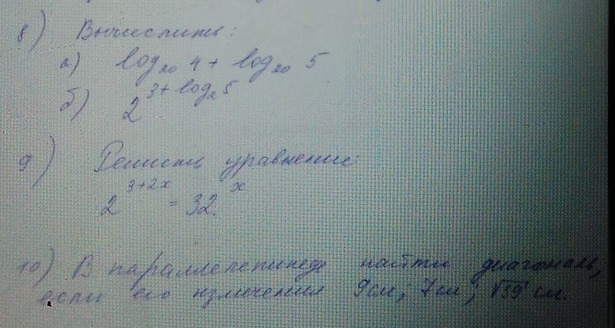 8) Вычислить:
а) log₂₀ 4 + log₂₀ 5
б) 2^(3+log₂5)
9) Решить уравнение:
2^(3+2x) = 32^x
10) В параллелепипеде найти диагональ,
если его измерения 9см; 7см; √39 см.